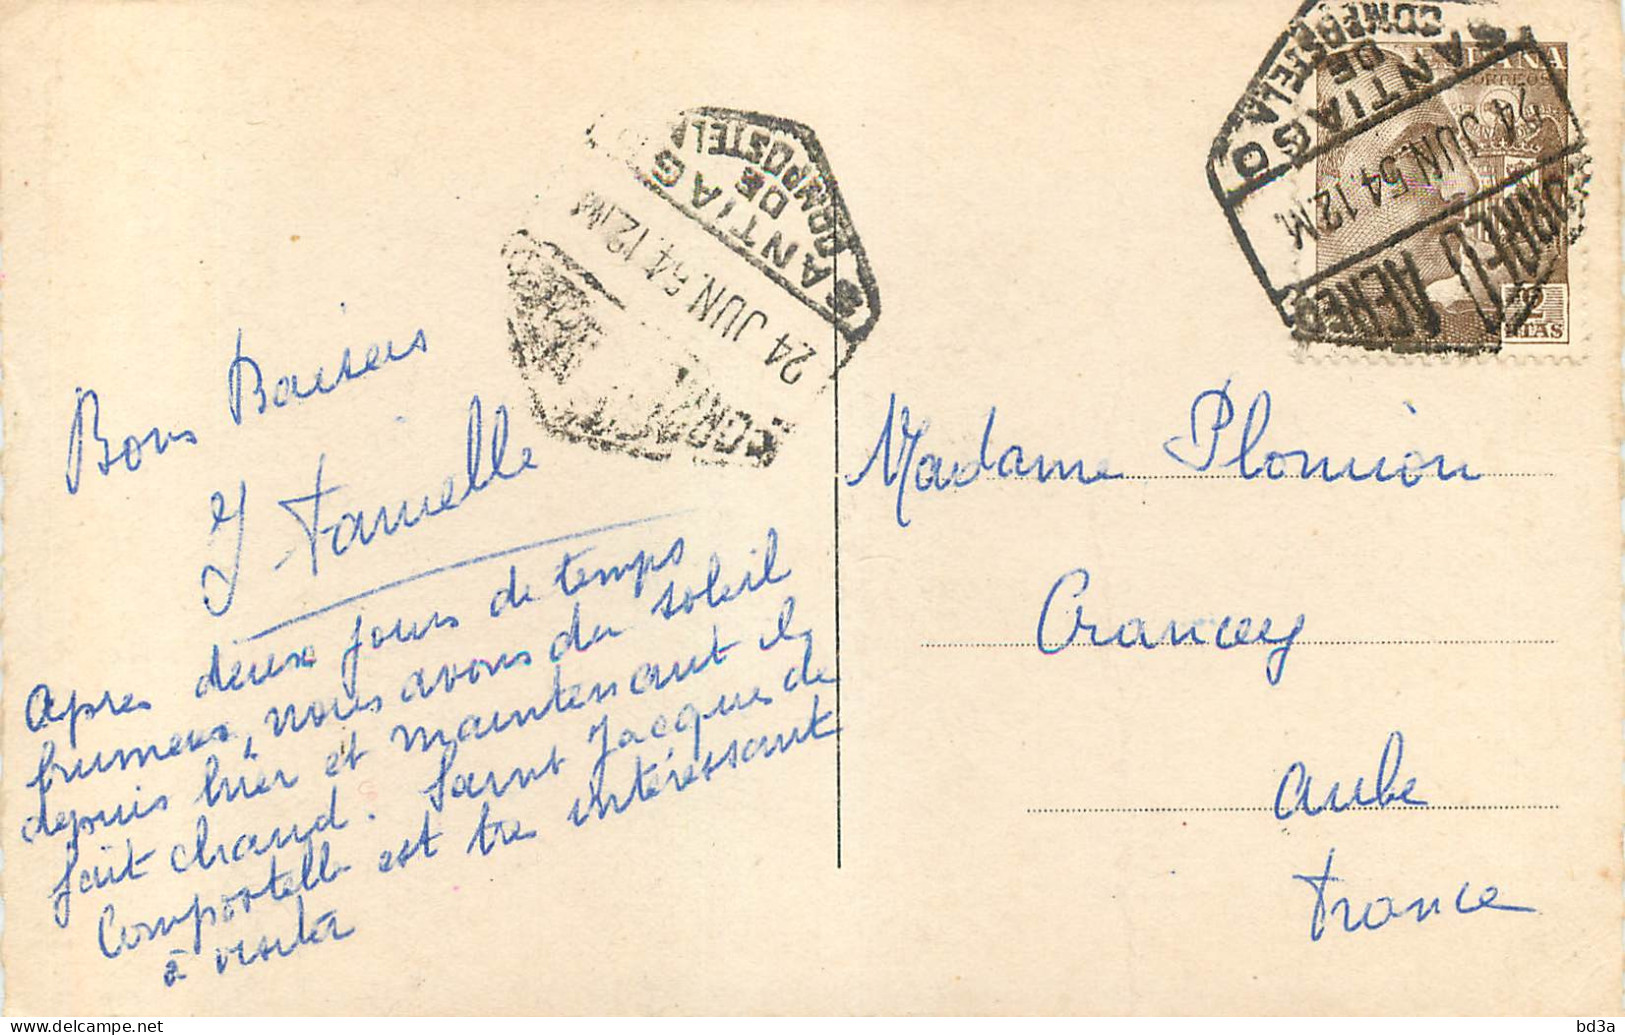 Bons Baisers
Y. Famelle
Après deux jours de temps
brumeux, nous avons du soleil
depuis hier et maintenant il y
fait chaud. Saint Jacques de
Compostelle est très intéressant
à visiter
SANTIAGO
DE
COMPOSTELA
24 JUN.54.12M
CORREO
SANTIAGO
DE
COMPOSTELA
24 JUN.54.12M
CORREO AEREO
ESPAÑA
CORREOS
2
PTAS
Madame Plomion
Crancey
Aube
France
bd3a